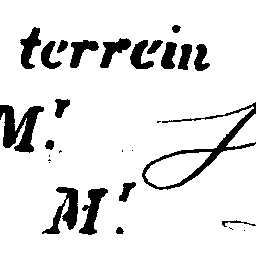 terrein
M.r
M.r